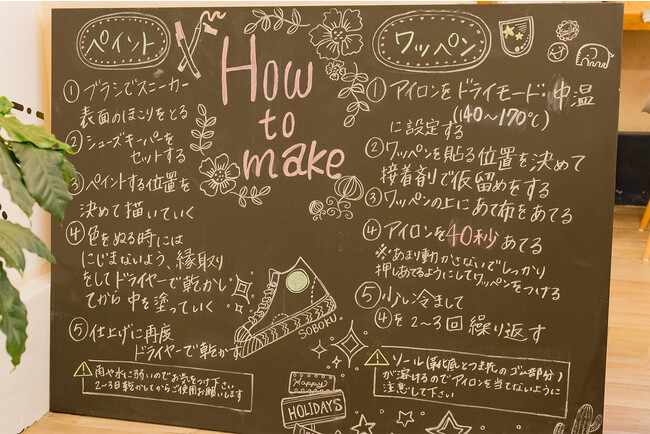 ペイント
① ブラシでスニーカー
表面のほこりをとる
② シューズキーパーを
セットする
③ ペイントする位置を
決めて描いていく
④ 色をぬる時には
にじまないよう、縁取り
をしてドライヤーで乾かし
てから中を塗っていく
⑤ 仕上げに再度
ドライヤーで乾かす
! 雨や水に弱いのでお気をつけ下さい
2~3日乾かしてからご使用お願いします
How
to
make
SOBOKU
Happy
HOLIDAYS
ワッペン
① アイロンをドライモード:中温
(140~170℃)
に設定する
② ワッペンを貼る位置を決めて
接着剤で仮留めをする
③ ワッペンの上にあて布をあてる
④ アイロンを40秒あてる
※あまり動かさないでしっかり
押しあてるようにしてワッペンをつける
⑤ 少し冷まして
④を2~3回繰り返す
! ソール(靴底とつま先のゴム部分)
が溶けるのでアイロンを当てないように
注意して下さい